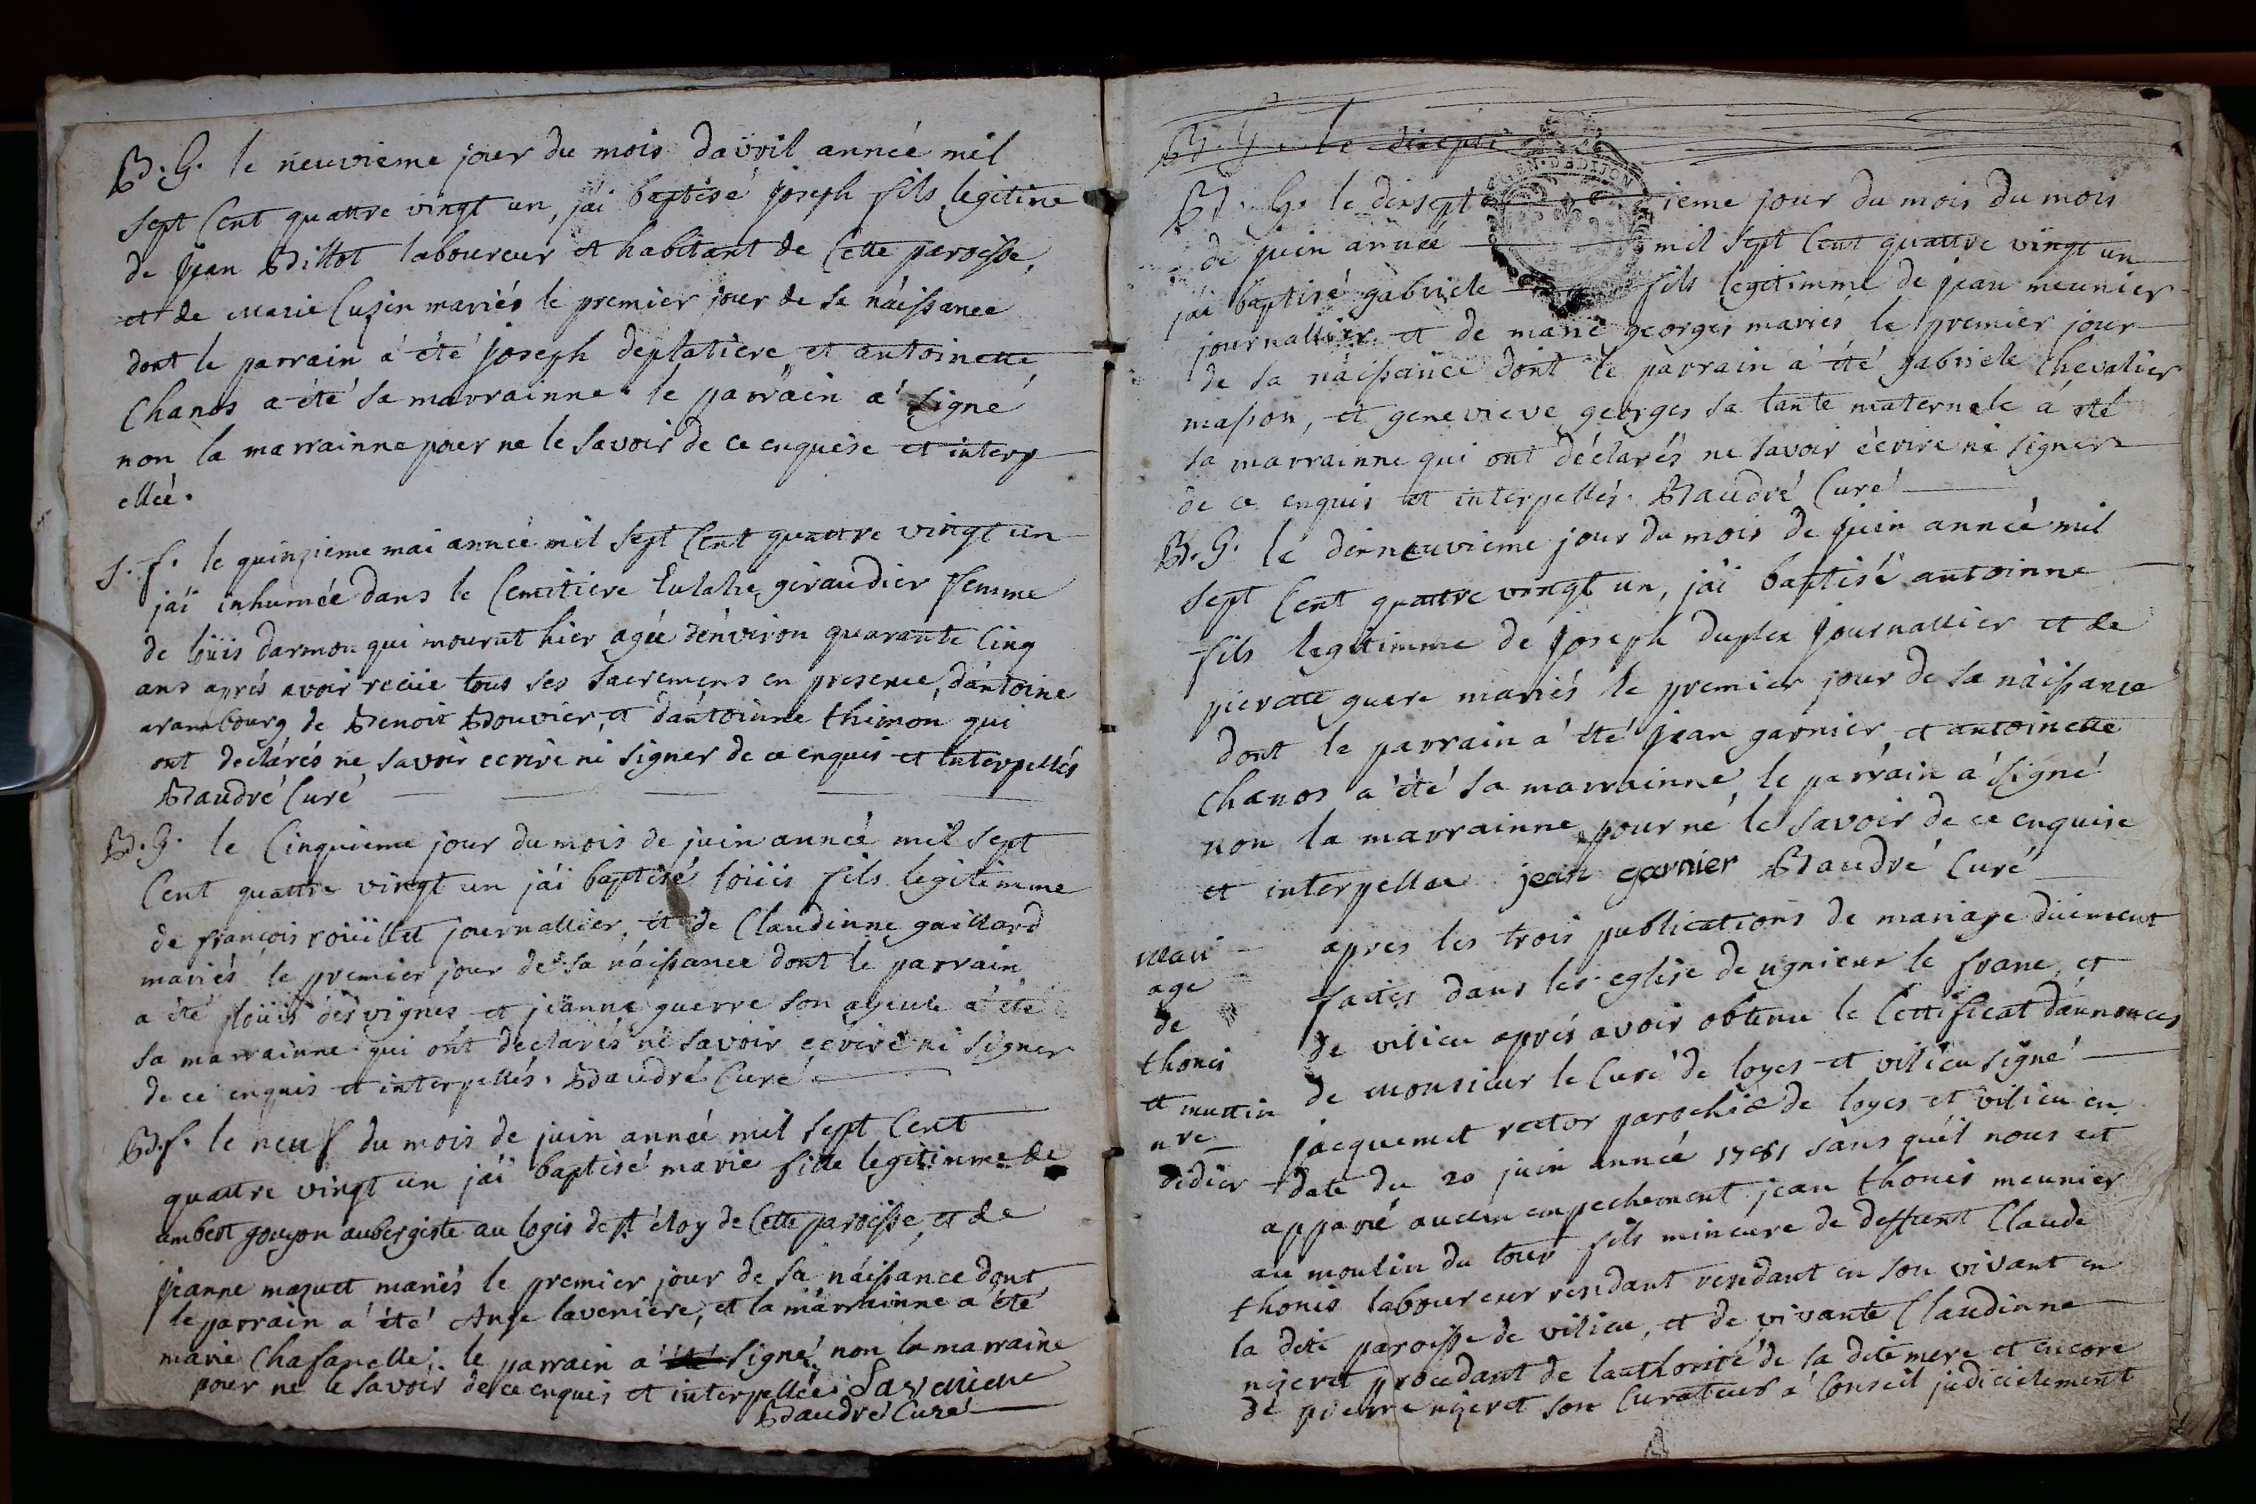 B. G. le neuvieme jour du mois davril année mil
sept Cent quattre vingt un, j'ai baptisé joseph fils legitime
de jean Billot laboureur et habitant de Cette paroisse,
et de Marie Cusin mariés le premier jour de sa naissance
dont le parrain a été joseph deplatiere et antoinette
Chanos a été sa marrainne. le parrain a signé
non la marrainne pour ne le savoir de ce enquise et interp
ellée.
S. f. le quinzieme mai année mil sept Cent quattre vingt un
j'ai inhumée dans le Cemitiere Eulalie giraudier femme
de loüis darmon qui mourut hier agée d'énviron quarante Cinq
ans aprés avoir recüe tous ses sacremens en presence, d'antoine
arambourg de Benoit Bouvier, et d'antoinne thimon qui
ont declarés ne savoir ecrire ni signer de ce enquis et interpellés
Baudré Curé
B. G. le Cinquieme jour du mois de juin année mil sept
Cent quattre vingt un j'ai baptisé loüis fils legitimme
de françois roüillet journallier, et de Claudinne gaillard
mariés le premier jour de sa naissance dont le parrain
a été loüis desvignes et jeanne guerre son ayeule a été
sa marrainne qui ont declarés ne savoir ecrire ni signer
de ce enquis et interpellés. Baudré Curé
B. f. le neuf du mois de juin année mil sept Cent
quattre vingt un j'ai baptisé marie fille legitimme de
ambert goujon aubergiste au logis de st éloy de Cette paroisse, et de
jeanne mazuet mariés le premier jour de sa naissance dont
le parrain a été Ange laveniere, et la marrainne a été
marie Chafanelle; le parrain a été signé non la marraine
pour ne le savoir de ce enquis et interpellée. Laveniere
Baudré Curé
B. G. le dixsepti
DE DIJON
B. G. le dixsept ieme jour du mois du mois
de juin année mil sept Cent quattre vingt un
j'ai baptisé gabriele fils legitimme de jean meunier
journallier et de marie georges mariés le premier jour
de sa naissance dont le parrain a été gabriele Chevalier
masson, et genevieve georges sa tante maternele a été
sa marrainne qui ont déclarés ne savoir écrire ni signer
de ce enquis et interpellés. Baudré Curé
B. G. le dixneuvieme jour du mois de juin année mil
sept Cent quattre vingt un, j'ai baptisé antoinne
fils legitimme de joseph duplex journallier et de
pierette guere mariés le premier jour de sa naissance
dont le parrain a été jean garnier, et antoinette
Chanos a été sa marrainne, le parrain a signé
non la marrainne pour ne le savoir de ce enquise
et interpellée jean garnier Baudré Curé
Mari
age
de
thonis
et muttin
ure
didier
apres les trois publications de mariage düement
faites dans les eglise de rignieux le franc, et
de vilieu aprés avoir obtenu le Certificat d'annonces
de Monsieur le Curé de loyes et vilieu signé
jacquemet rector parochiæ de loyes et vilieu en
date du 20 juin année 1781 sans quél nous est
apparü aucun empechement jean thonis meunier
au moulin du tour fils mineure de deffunt Claude
thonis laboureur residant residant en son vivant en
la dite paroisse de vilieu, et de vivante Claudinne
procedant de lauthorité de sa dite mere et encore
de pierre son Curateur a Conseil judiciélement